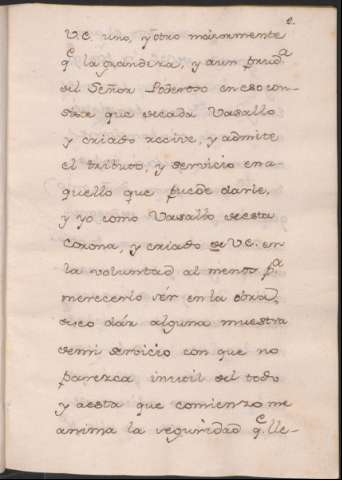 2.
V.E. uno, y otro maiormente
q.e la grandeza, y aun prud.a
del Señor Poderoso en eso con-
siste que decada Vasallo
y criado recive, y admite
el tributo, y servicio en a-
quello que puede darle,
y yo como Vasallo deesta
Corona, y criado de V.E. en
la voluntad al menos p.a
merecerlo sér en la obra,
deseo dár alguna muestra
demi servicio con que no
parezca inutil del todo
y aesta que comienzo me
anima la seguridad q.e lle-